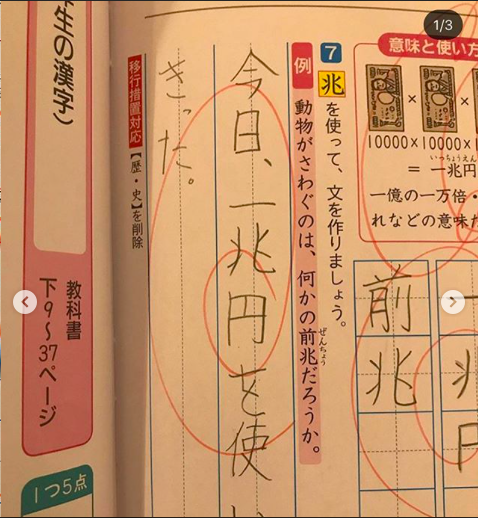 1/3
意味と使い方
10000×10000×1
= 一兆円
いっちょうえん
一億の一万倍・
れなどの意味
前兆
7 兆を使って、文を作りましょう。
例 動物がさわぐのは、何かの前兆だろうか。
ぜんちょう
今日、一兆円を使い
きった。
移行措置対応【歴・史】を削除
生の漢字)
教科書
下9〜37ページ
1つ5点